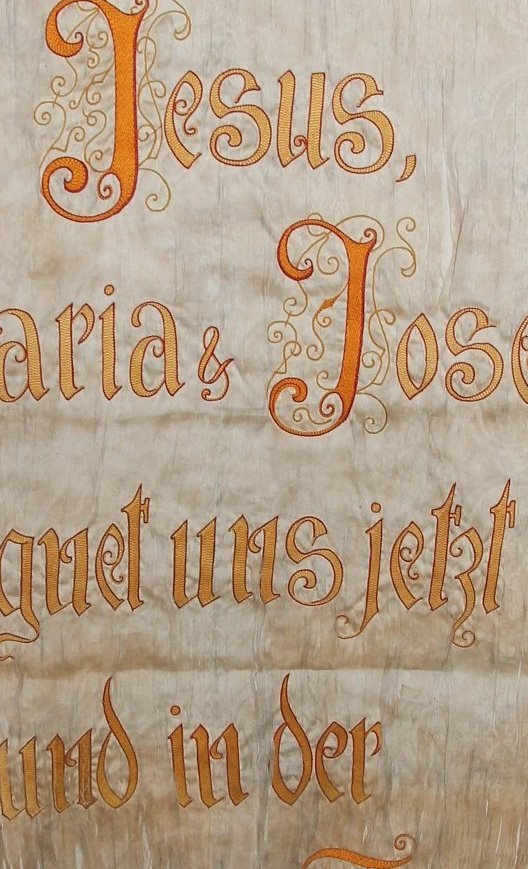 Jesus,
aria & Jose
gnet uns jetzt
und in der